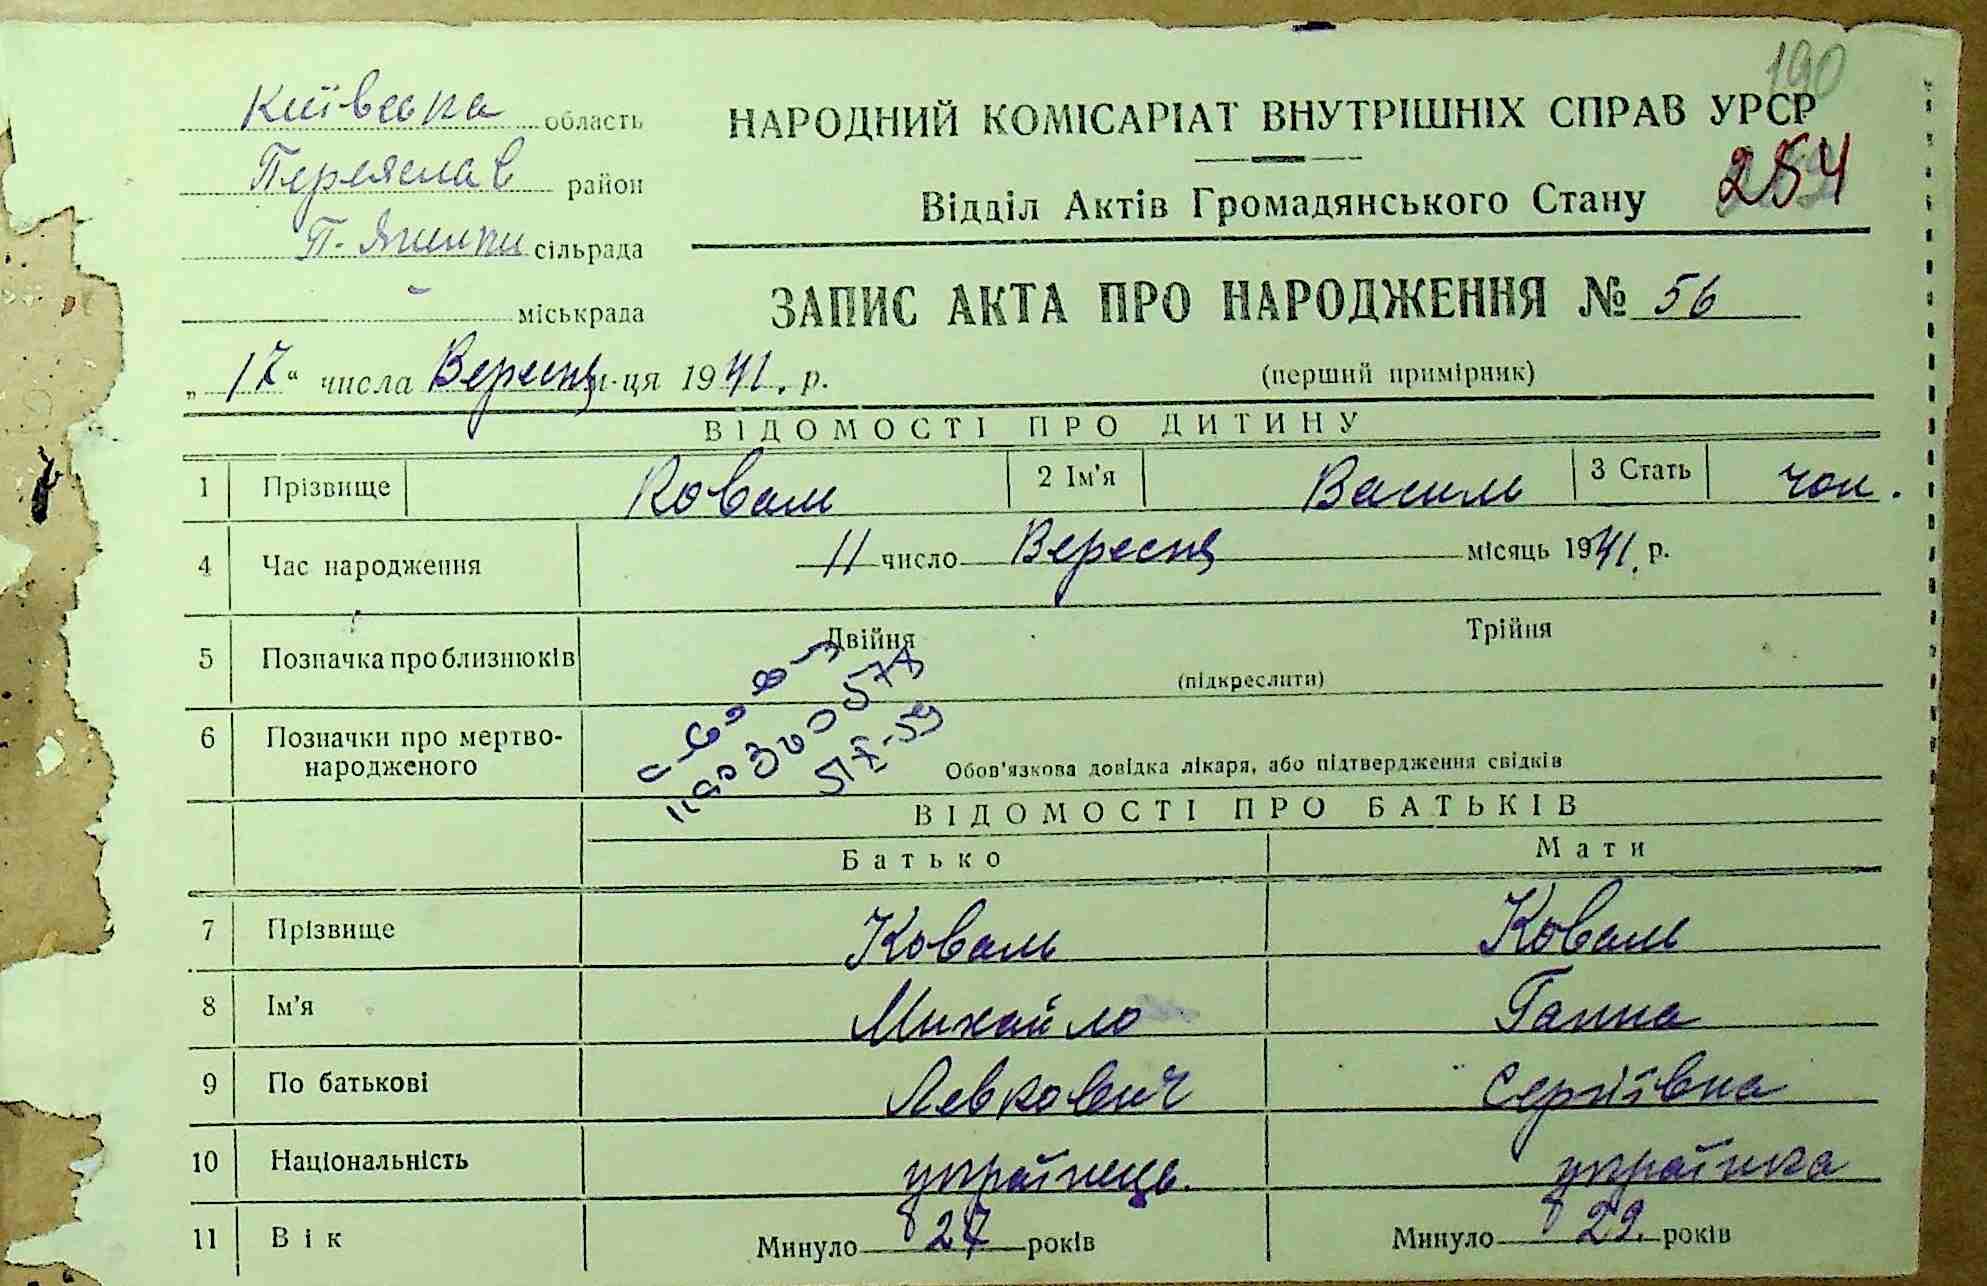 190
Київська область
НАРОДНИЙ КОМІСАРІАТ ВНУТРІШНІХ СПРАВ УРСР
Переяслав район
254
Відділ Актів Громадянського Стану
П- сільрада
міськрада
ЗАПИС АКТА ПРО НАРОДЖЕННЯ № 56
„17“ числа Вересня м-ця 1941. р.
(перший примірник)
ВІДОМОСТІ ПРО ДИТИНУ
1 Прізвище Коваль 2 Ім'я Василь 3 Стать чол.
4 Час народження 11 число Вересня місяць 1941. р.
5 Позначка про близнюків Двійня Трійня
(підкреслити)
6 Позначки про мертво-
народженого
Обов'язкова довідка лікаря, або підтвердження свідків
ВІДОМОСТІ ПРО БАТЬКІВ
Батько Мати
7 Прізвище Коваль Коваль
8 Ім'я Михайло Ганна
9 По батькові Левкович Сергіївна
10 Національність українець. українка
11 Вік Минуло 27 років Минуло 29. років